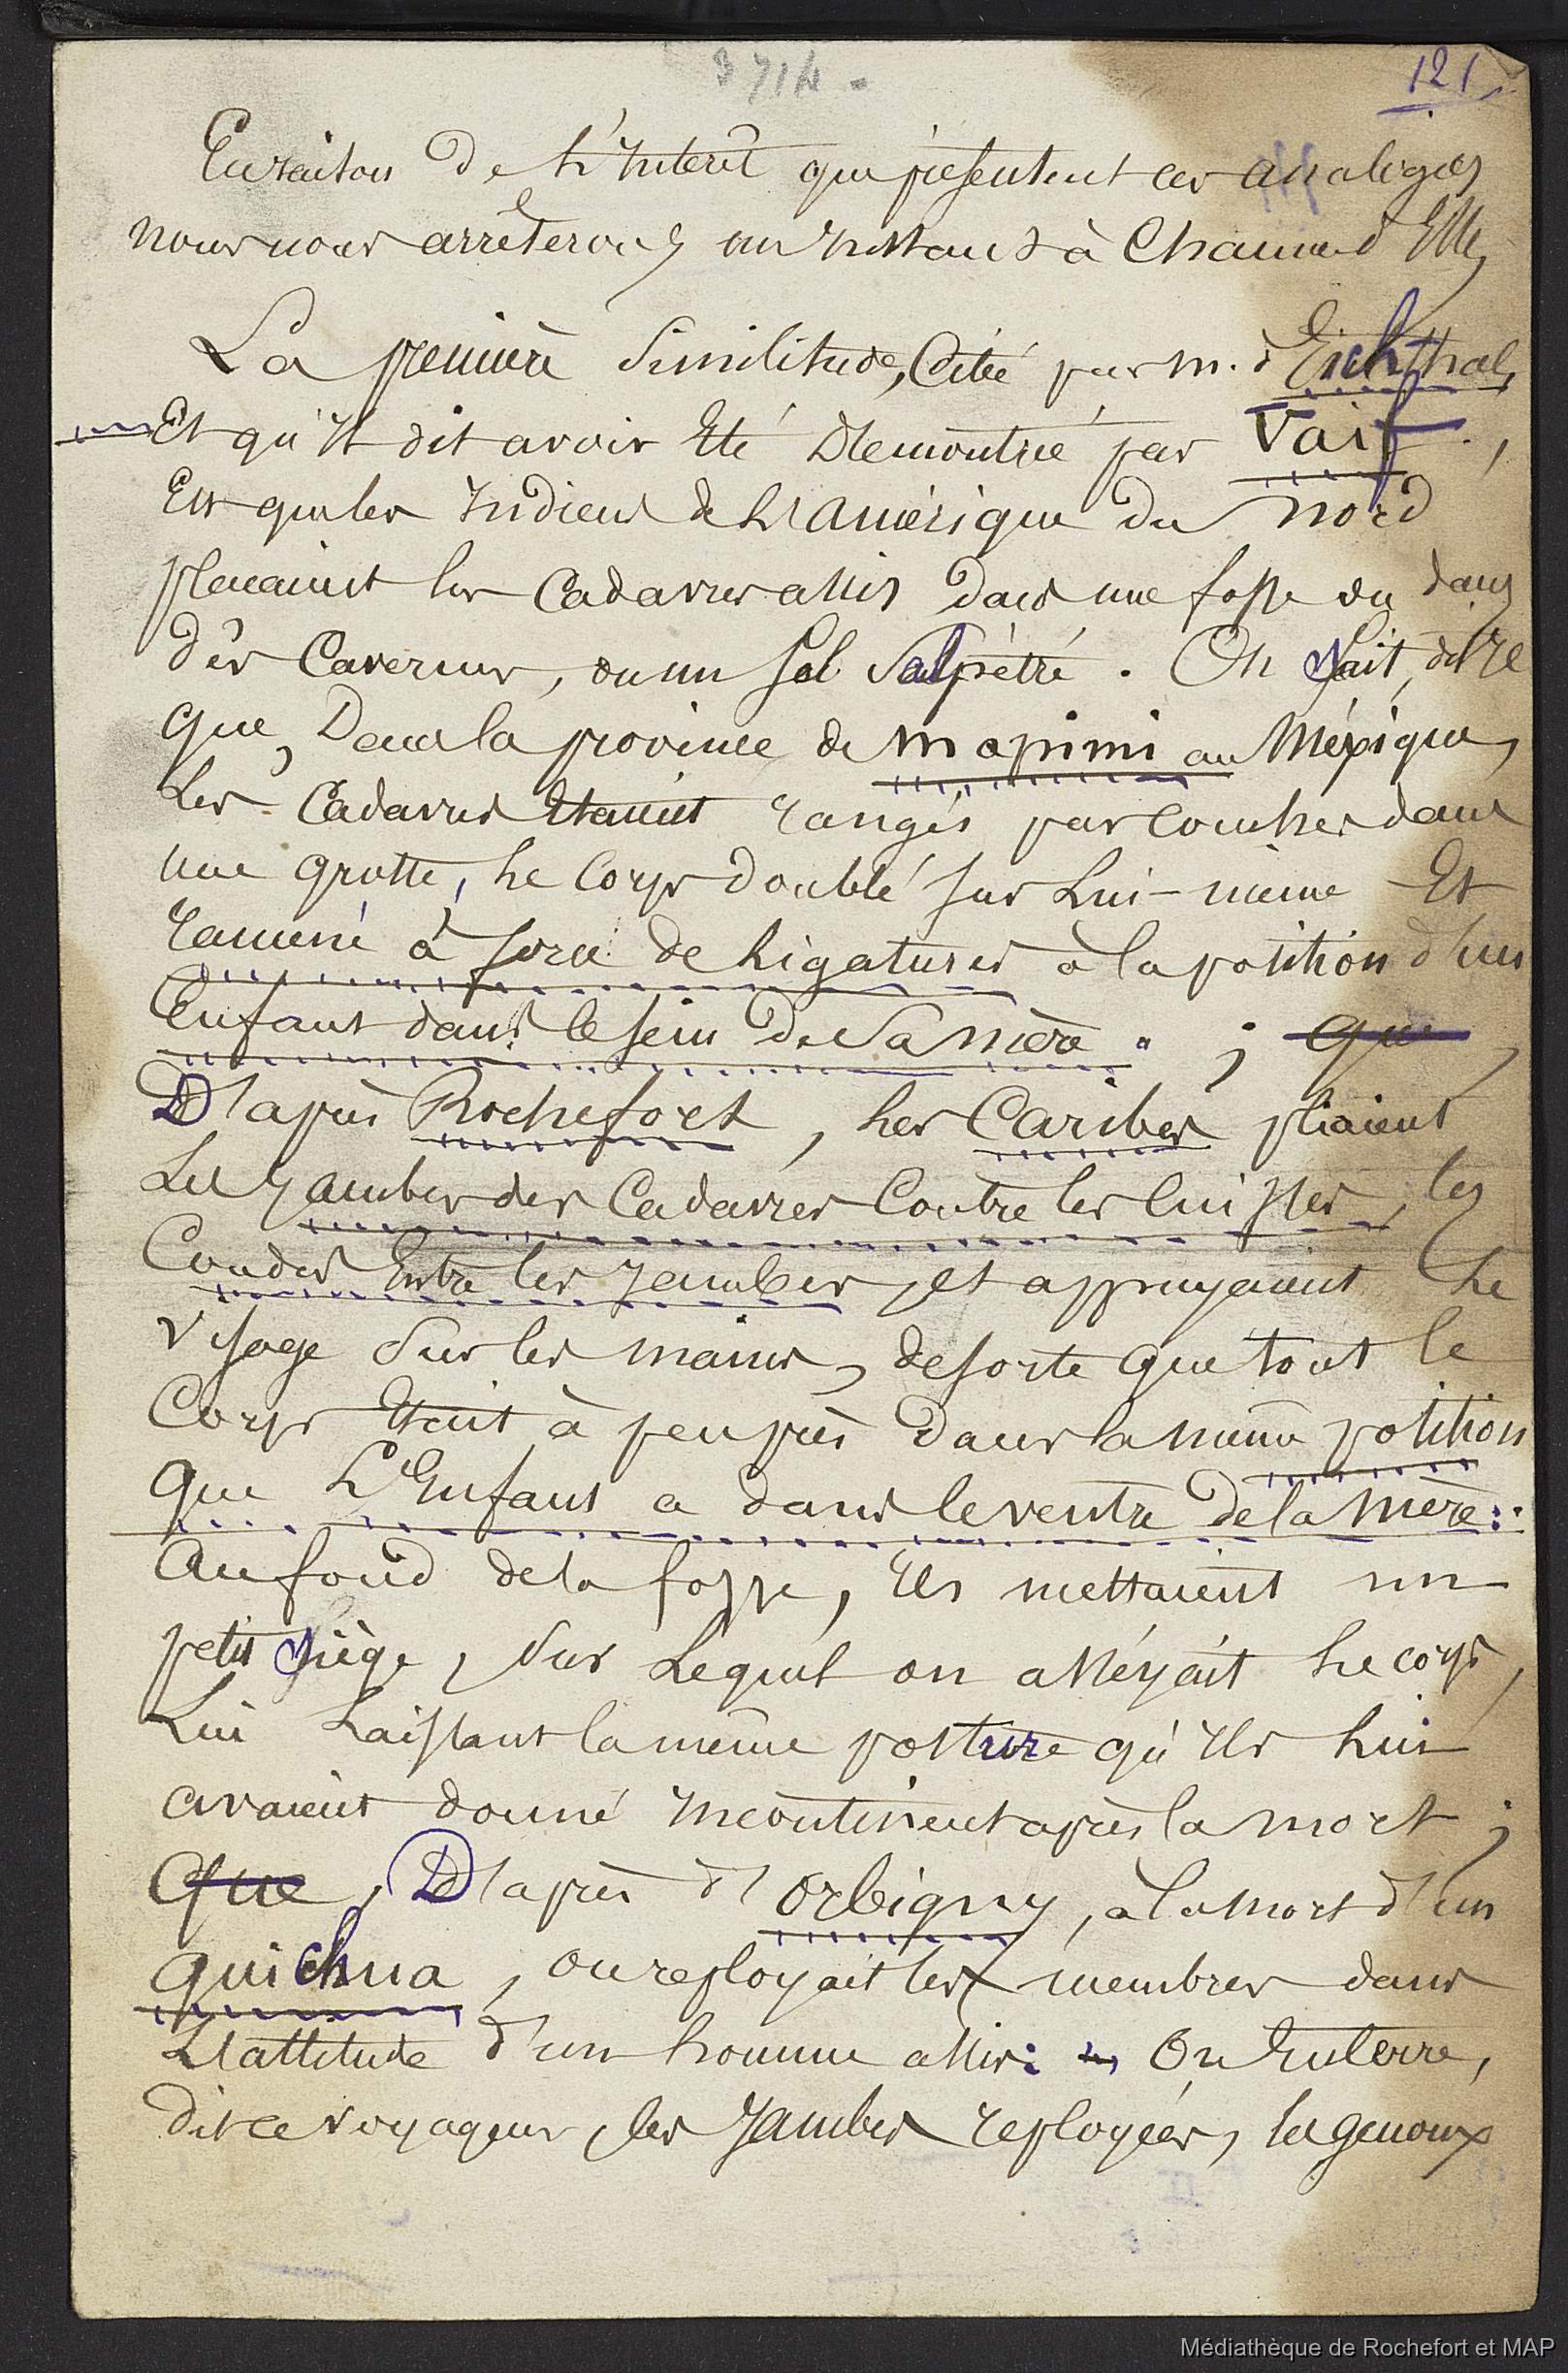 371 4 -
121.
En raison de L'Interêt que présentent ces analogies
nous nous arrêterons un Instant à Chacune d'Elles
La première Similitude, Citée par m. d'Eichthal,
Et qu'Il dit avoir Eté Démontrée par Vaif.,
Est que les Indiens de L'Amérique du nord
plaçaient les Cadavres assis dans une fosse ou dans
des Cavernes, ou un sol salpétré. On sait, dit-Il
que, Dans la province de mapimi au Méxique,
Les Cadavres Etaient rangés par couches dans
une grotte, Le Corps doublé sur Lui-même Et
ramené à force de Ligatures à la position d'un
Enfant dans le sein de Sa mère. ; que,
D'après Rochefort, Les Caribes pliaient
Les Jambes des Cadavres Contre les cuisses, les
Coudes Entre les Jambes, et appuyaient Le
visage Sur les mains, de sorte que tout le
Corps Etait à peu près dans la même position
que L'Enfant a dans le ventre de la mère :
au fond de la fosse, Ils mettaient un
petit siège, sur Lequel on asséyait Le corps,
Lui Laissant la même posture qu'Ils Lui
avaient donné Incontinent après la mort ;
que, D'après d'Orbigny, à la mort d'un
quichua, on reployait les membres dans
L'attitude d'un homme assis : On Enterre,
dit ce voyageur, les Jambes reployées, les genoux
Médiathèque de Rochefort et MAP